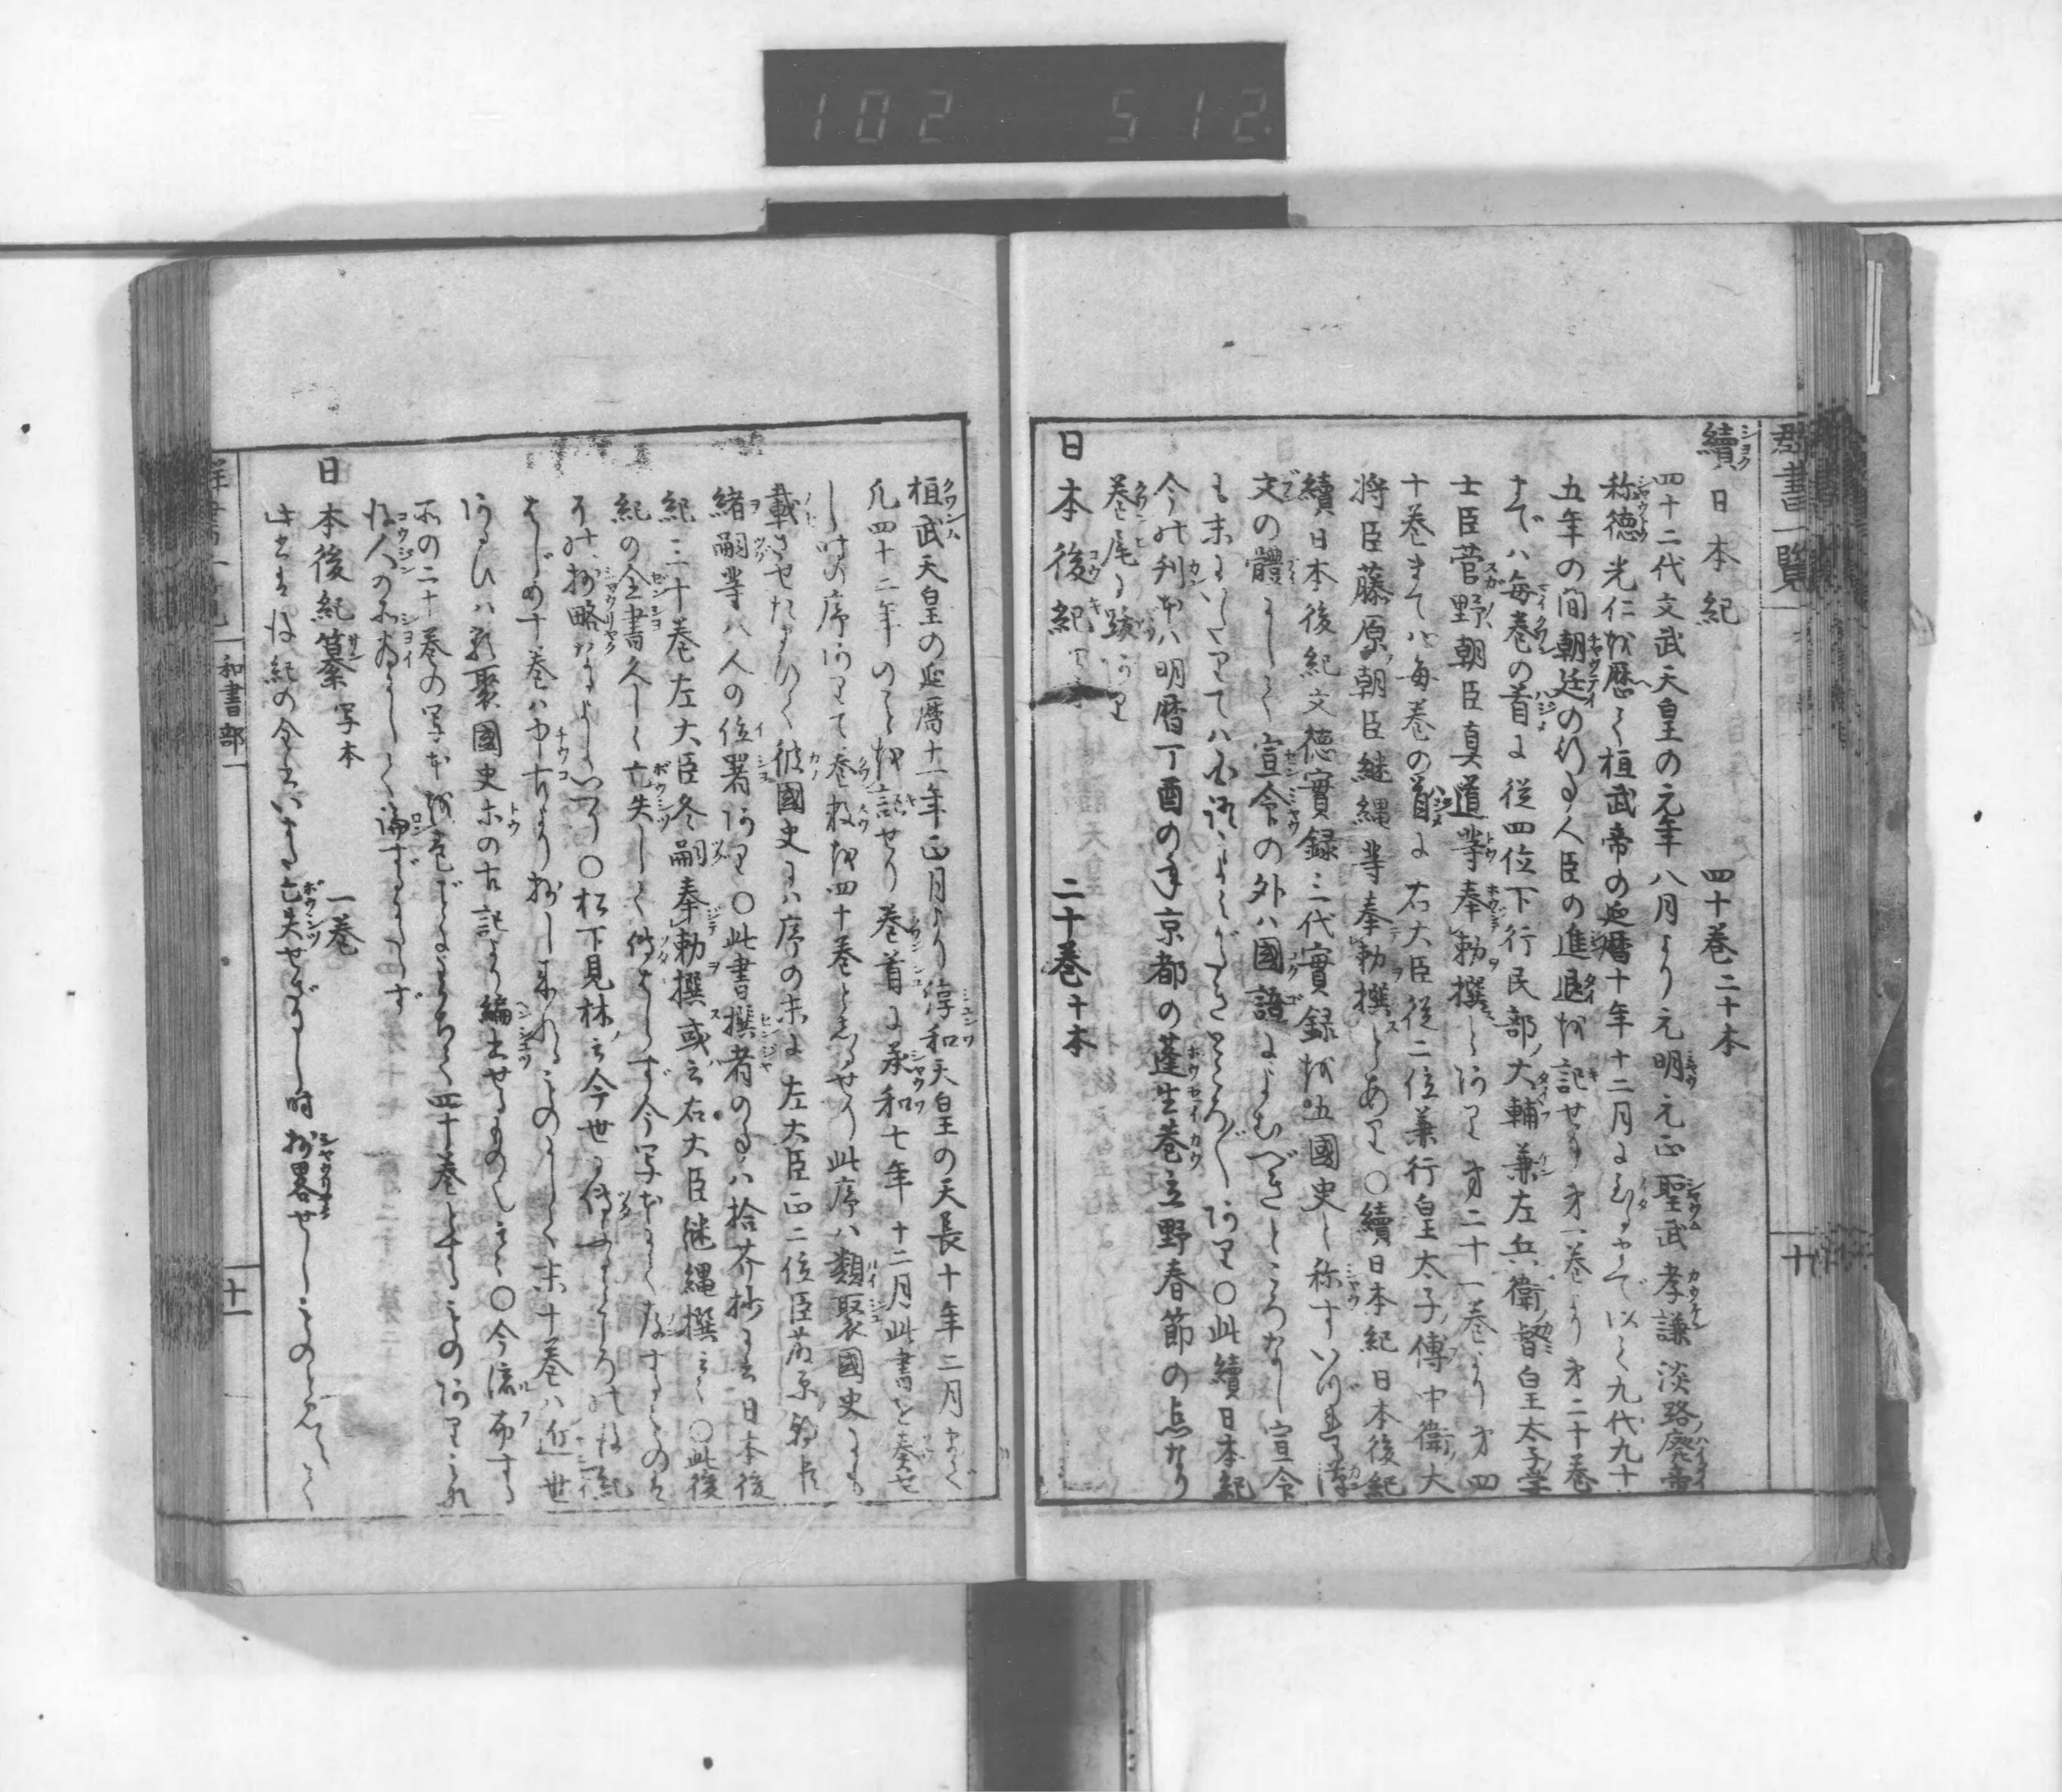 102 512
群書一覧
十
續日本紀 四十巻二十本
四十二代文武天皇の元年八月より元明元正聖武孝謙淡路廢帝
称徳光仁を歴て桓武帝の延暦十年十二月に至るまで以て九代九十
五年の間朝廷の行事人臣の進退を記せり第一巻より第二十巻
までハ毎巻の首に従四位下行民部大輔兼左兵衛督皇太子学
士臣菅野朝臣真道等奉勅撰とあり第二十一巻より第四
十巻までハ毎巻の首に右大臣従二位兼行皇太子傅中衛大
将臣藤原朝臣継縄等奉勅撰とあり○續日本紀日本後紀
續日本後紀文徳實録三代實録を五國史と称すいづれも漢
文の體にして宣命の外ハ國語によむべきところなし宣命
も末にいたりてハ あり○此續日本紀
今の刊本ハ明暦丁酉の年京都の蓬生巷立野春節の点なり
巻尾に跋あり
日本後紀 二十巻十本
桓武天皇の延暦十一年正月より淳和天皇の天長十年二月まで
凡四十二年のことを記せり巻首に承和七年十二月此書を奏せ
し時の序ありて巻数を四十巻としるせり此序ハ類聚國史にも
載させたまひて彼國史にハ序の末に左大臣正二位臣藤原朝臣
緒嗣等八人の位署あり○此書撰者の事ハ拾芥抄にも日本後
紀三十巻左大臣冬嗣奉勅撰或云右大臣継縄撰云々○此後
紀の全書久しく亡失して傳ハらず今写本にて なすものは
その抄略 といへり○松下見林云今世に傳 後紀
はじめ十巻ハ中古より抄し来れるものにして末十巻ハ近世
あるひハ類聚國史等の古記より編出せるもの也云々○今流布する
所の二十巻の写本を 四十巻とするものありこれ
後人の所為にして論ずるにたらず
日本後紀纂 写本 一巻
此書は後紀の全書いまだ亡失せざりし時抄畧せしものと見えて
群書一覧
和書部一
十一